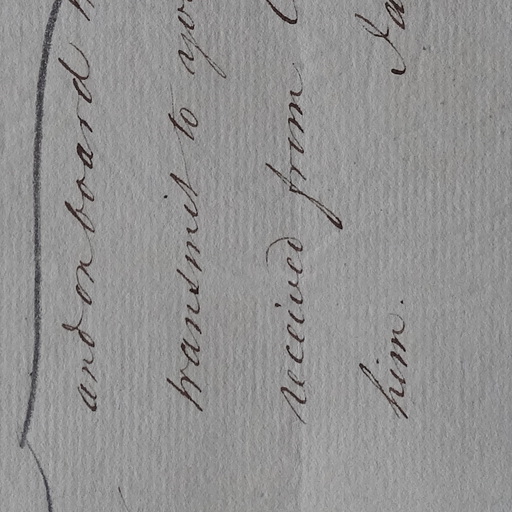 and on board
transmit to you
received from
him.